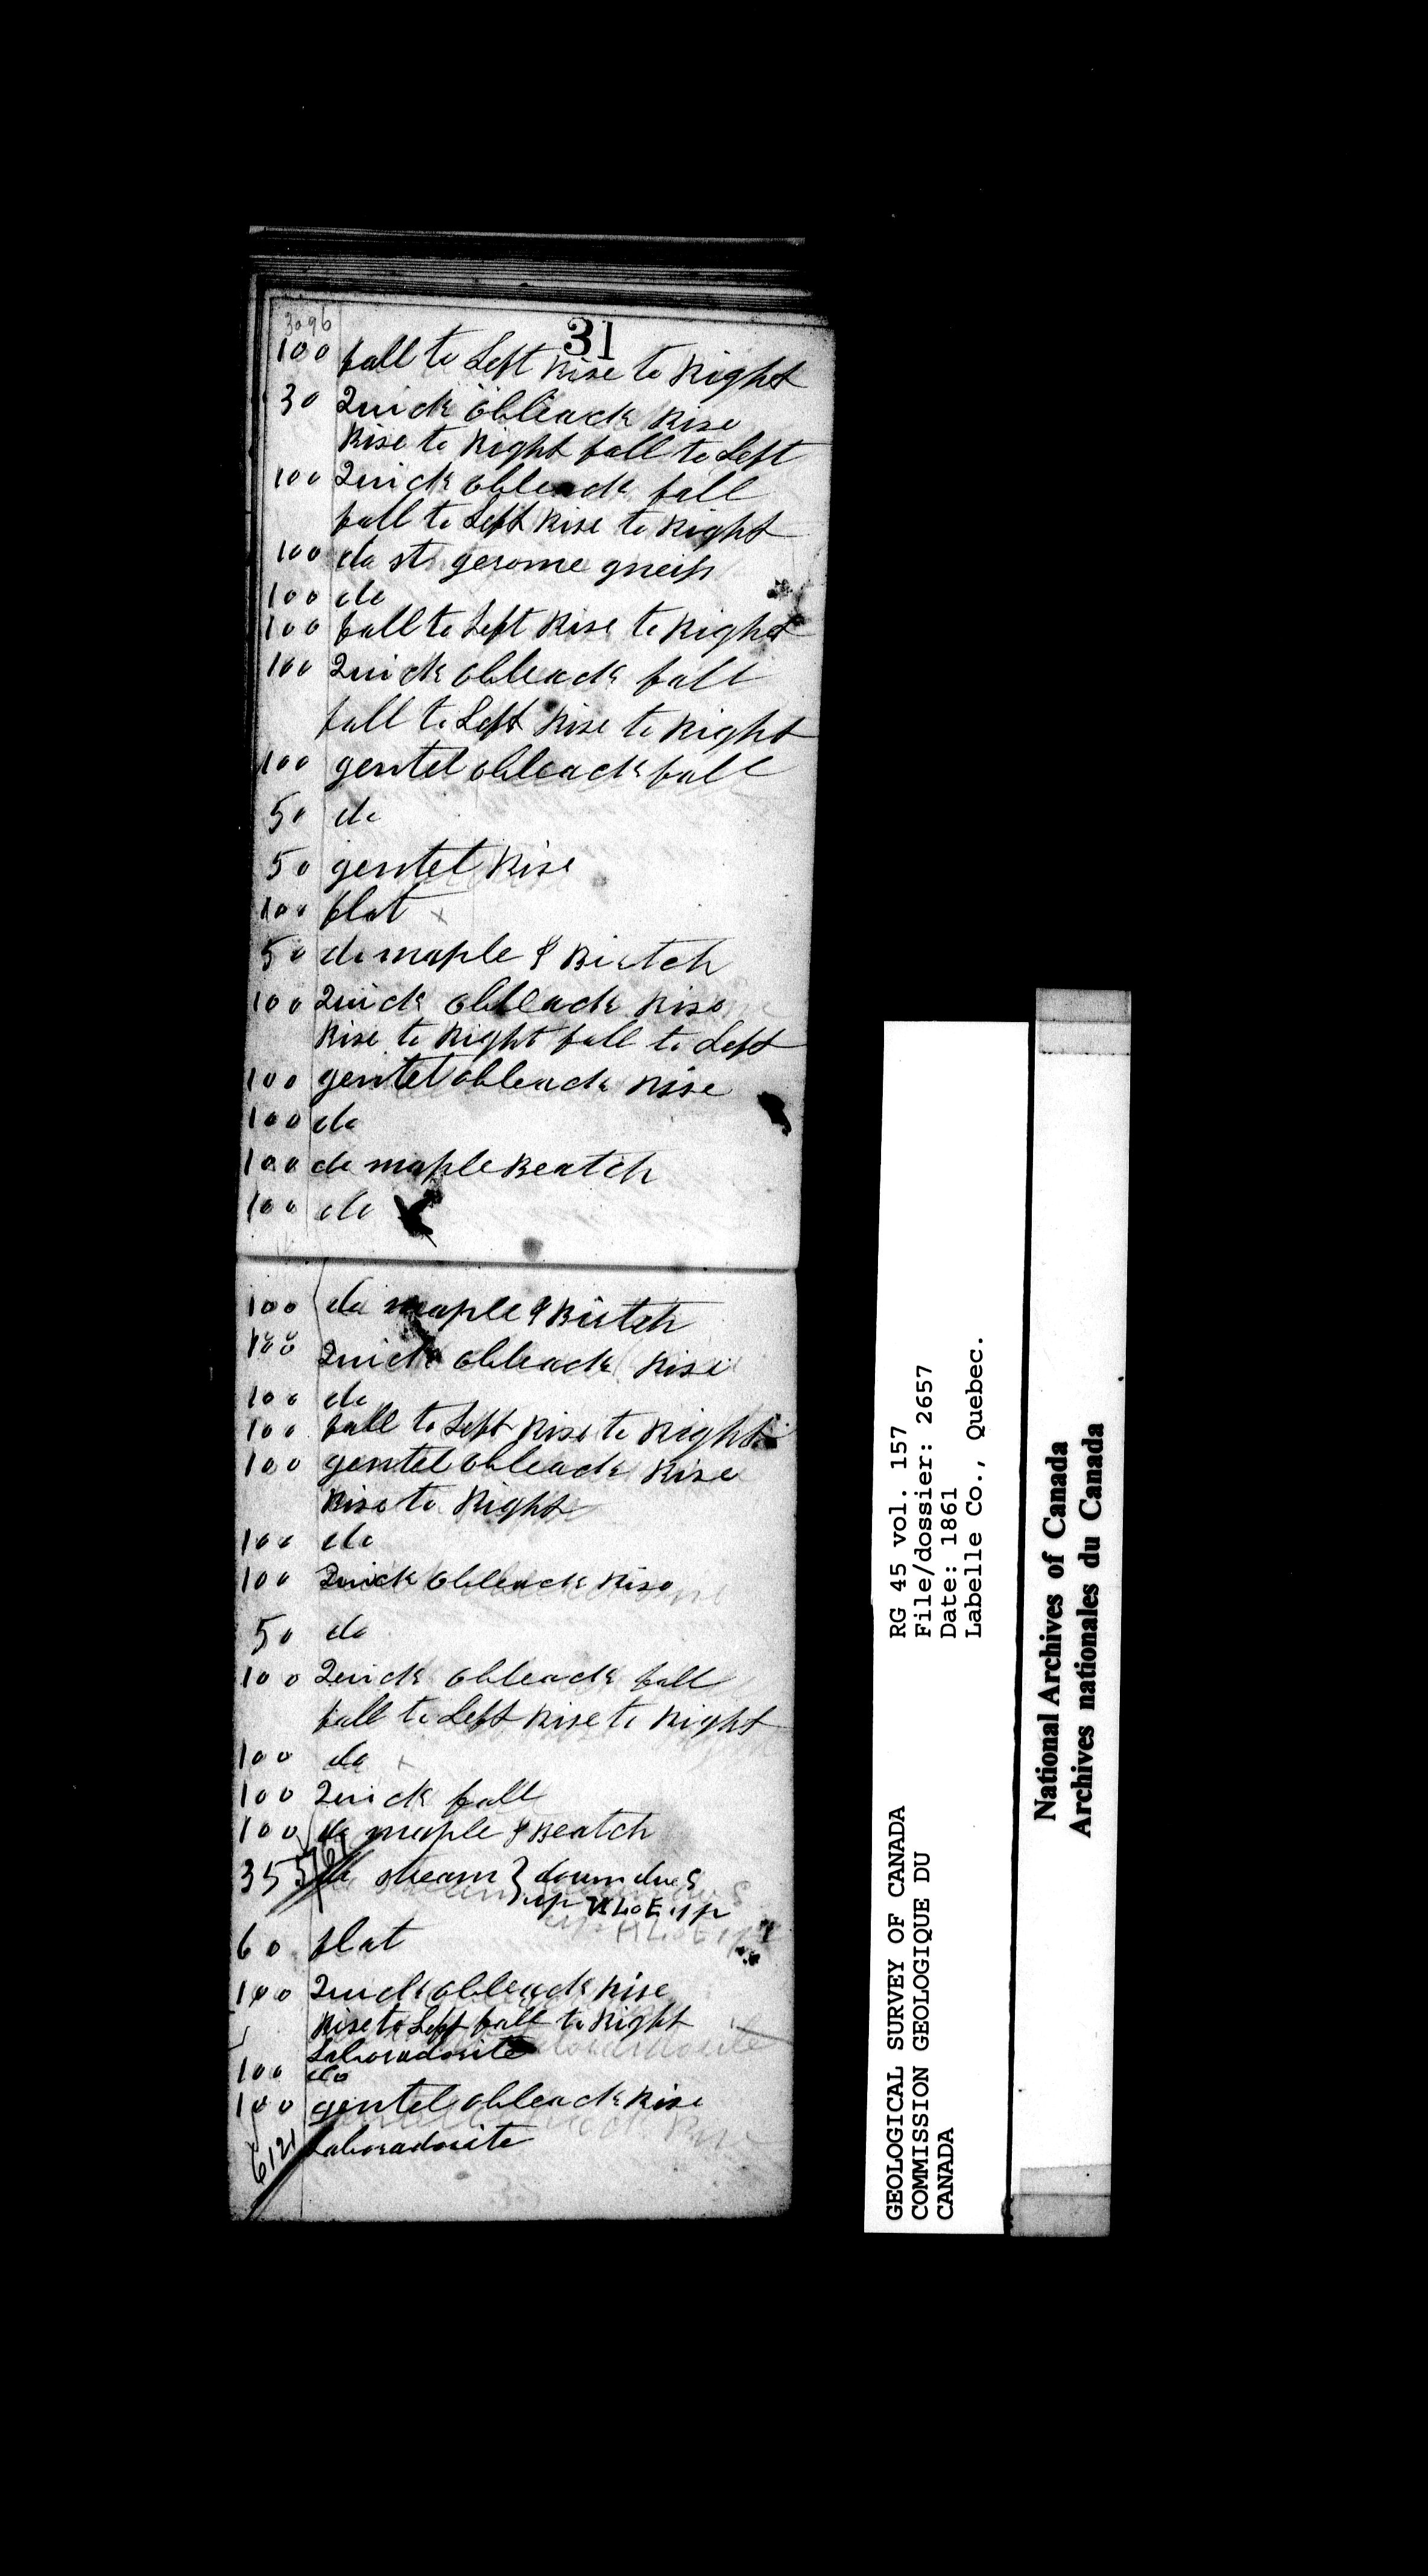 31
3096
100 fall to Left Rise to Right
30 Quick obleack Rise
Rise to Right fall to Left
100 Quick obleack fall
fall to Left Rise to Right
100 do st gerome gneiss
100 do
100 fall to Left Rise to Right
100 Quick obleack fall
fall to Left Rise to Right
100 gentel obleack fall
50 do
50 gentel Rise
100 flat
50 do maple & Birtch
100 Quick obleack Rise
Rise to Right fall to Left
100 gentel obleack Rise
100 do
100 do maple Beatch
100 do
100 do maple & Birtch
100 Quick obleack Rise
100 do
100 fall to Left Rise to Right
100 gentel obleack Rise
Rise to Right
100 do
100 Quick obleack Rise
50 do
100 Quick obleack fall
fall to Left Rise to Right
100 do
100 Quick fall
100 do maple & Beatch
35 5761 stream } down due S
up N40E up
60 flat
100 Quick obleack Rise
Rise to Left fall to Right
Laboradorite
100 do
100 gentel obleack Rise
6121 Laboradorite
RG 45 vol. 157
File/dossier: 2657
Date: 1861
Labelle Co., Quebec.
GEOLOGICAL SURVEY OF CANADA
COMMISSION GEOLOGIQUE DU
CANADA
National Archives of Canada
Archives nationales du Canada